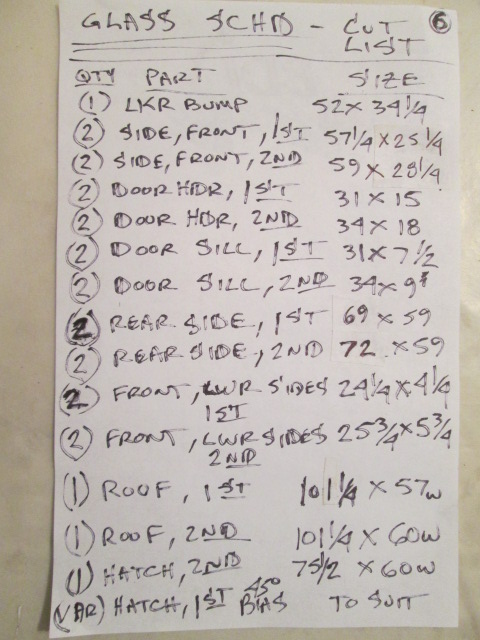 GLASS SCHD - CUT LIST 6
QTY PART SIZE
(1) LKR BUMP 52 x 34 1/4
(2) SIDE, FRONT, 1ST 57 1/4 x 25 1/4
(2) SIDE, FRONT, 2ND 59 x 28 1/4
(2) DOOR HDR, 1ST 31 x 15
(2) DOOR HDR, 2ND 34 x 18
(2) DOOR SILL, 1ST 31 x 7 1/2
(2) DOOR SILL, 2ND 34 x
(2) REAR SIDE, 1ST 69 x 59
(2) REAR SIDE, 2ND 72 x 59
(2) FRONT, LWR SIDES 24 1/4 x 4 1/4
1ST
(2) FRONT, LWR SIDES 25 3/4 x 5 3/4
2ND
(1) ROOF, 1ST 101 1/4 x 57W
(1) ROOF, 2ND 101 1/4 x 60W
(1) HATCH, 2ND 75 1/2 x 60W
(VAR) HATCH, 1ST 45° BIAS TO SUIT